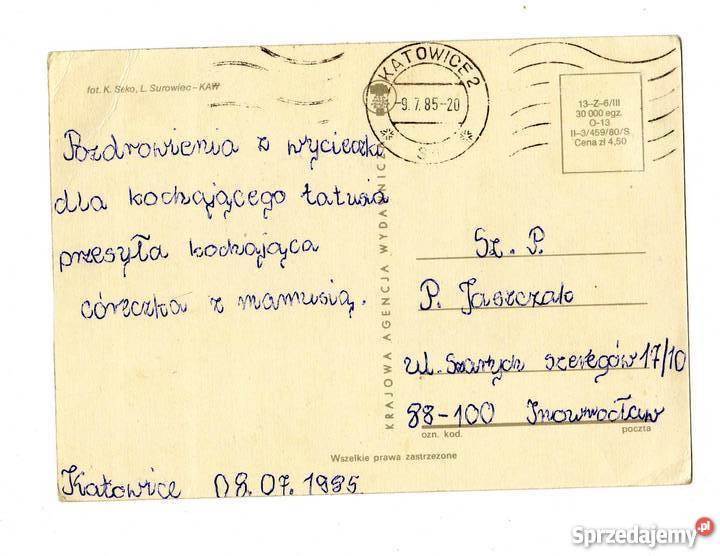 fot. K. Seko, L. Surowiec – KAW
KATOWICE 2
-9.7.85-20
13–Z–6/III
30 000 egz.
O-13
II–3/459/80/S
Cena zł 4,50
Pozdrowienia z wycieczki
dla kochającego tatusia
przesyła kochająca
córeczka z mamusią.
KRAJOWA AGENCJA WYDAWNICZA
Sz. P.
P. Jaszczak
ul. Szarych Szeregów 17/10
88-100 Inowrocław
ozn. kod. poczta
Wszelkie prawa zastrzeżone
Katowice 08.07.1985
Sprzedajemy.pl